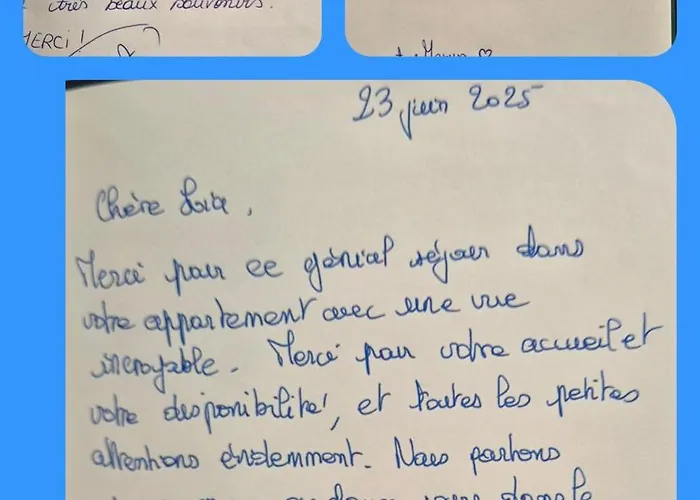 très beaux souvenirs.
MERCI !
23 juin 2025
Chère
Merci pour ce génial séjour dans
votre appartement avec une vue
incroyable. Merci pour votre accueil et
votre disponibilité, et toutes les petites
attentions évidemment. Nous partons
dans le